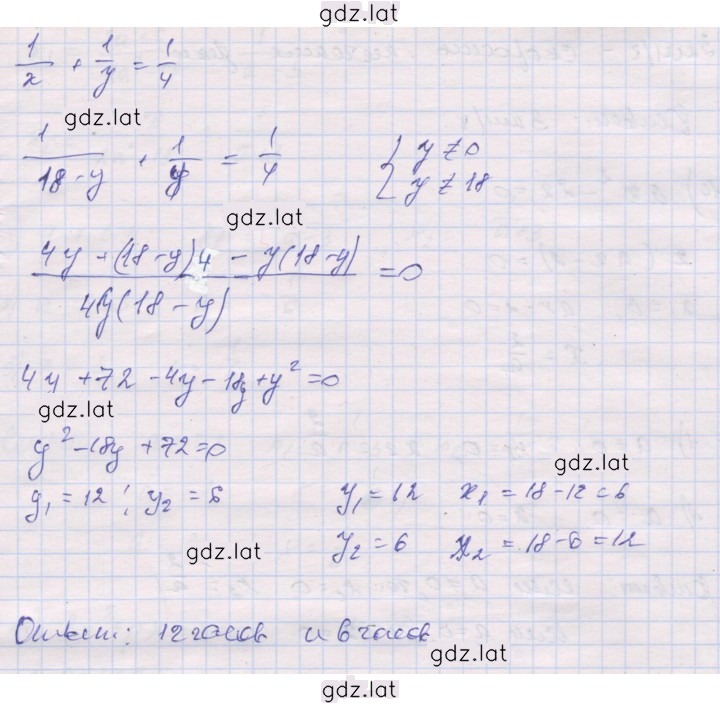 gdz.lat
1/x + 1/y = 1/4
gdz.lat
1/(18-y) + 1/y = 1/4 { y ≠ 0
y ≠ 18
gdz.lat
(4y + (18-y)4 - y(18-y))/(4y(18-y)) = 0
4y + 72 - 4y - 18y + y² = 0
gdz.lat
y² - 18y + 72 = 0
gdz.lat
y₁ = 12 ; y₂ = 6 y₁ = 12 x₁ = 18-12 = 6
gdz.lat
y₂ = 6 x₂ = 18-6 = 12
Ответ: 12 часов и 6 часов
gdz.lat
gdz.lat